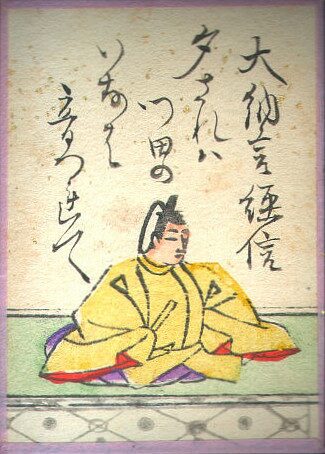 大納言經信
夕されハ
門田の
いなは
音つれて